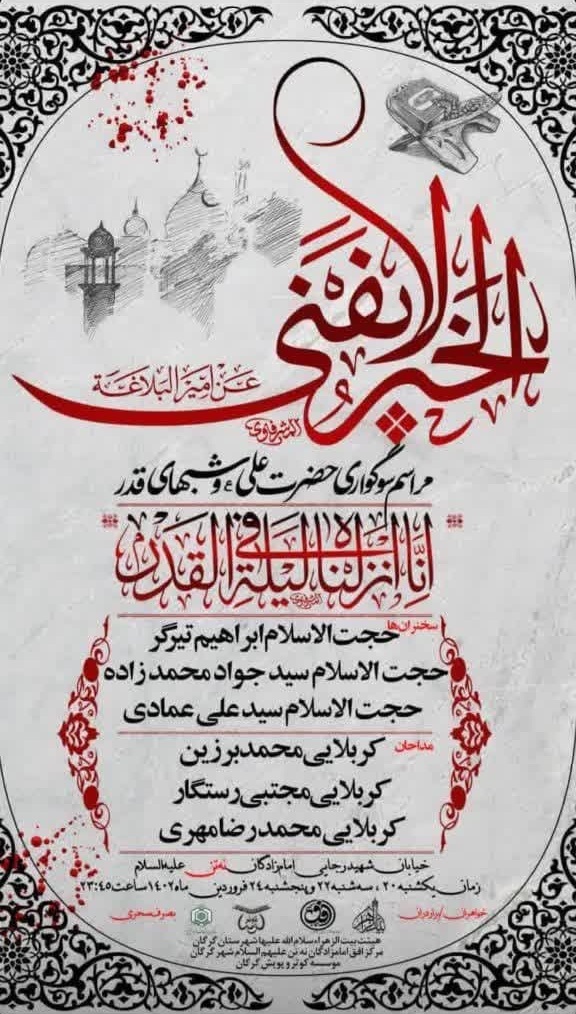 الخیر لایفنی
عَن اَمیرِ البَلاغَة
مراسم سوگواری حضرت علی ع و شبهای قدر
اِنّا اَنزلناهُ فی لَیلَةِ القَدرِ
سخنران‌ها
حجت الاسلام ابراهیم تیزگر
حجت الاسلام سید جواد محمدزاده
حجت الاسلام سید علی عمادی
مداحان
کربلایی محمد برزین
کربلایی مجتبی رستگار
کربلایی محمدرضا مهری
خیابان شهید رجایی امامزادگان نه‌تن علیه‌السلام
زمان: یکشنبه ۲۰، سه‌شنبه ۲۲ و پنجشنبه ۲۴ فروردین ماه ۱۴۰۲ ساعت ۲۳:۴۵
خواهران/برادران
بصرف سحری
هیئت بیت الزهراء سلام الله علیها شهرستان گرگان
مرکز افق امامزادگان نه تن علیهم السلام شهر گرگان
موسسه کوثر و پویش گرگان